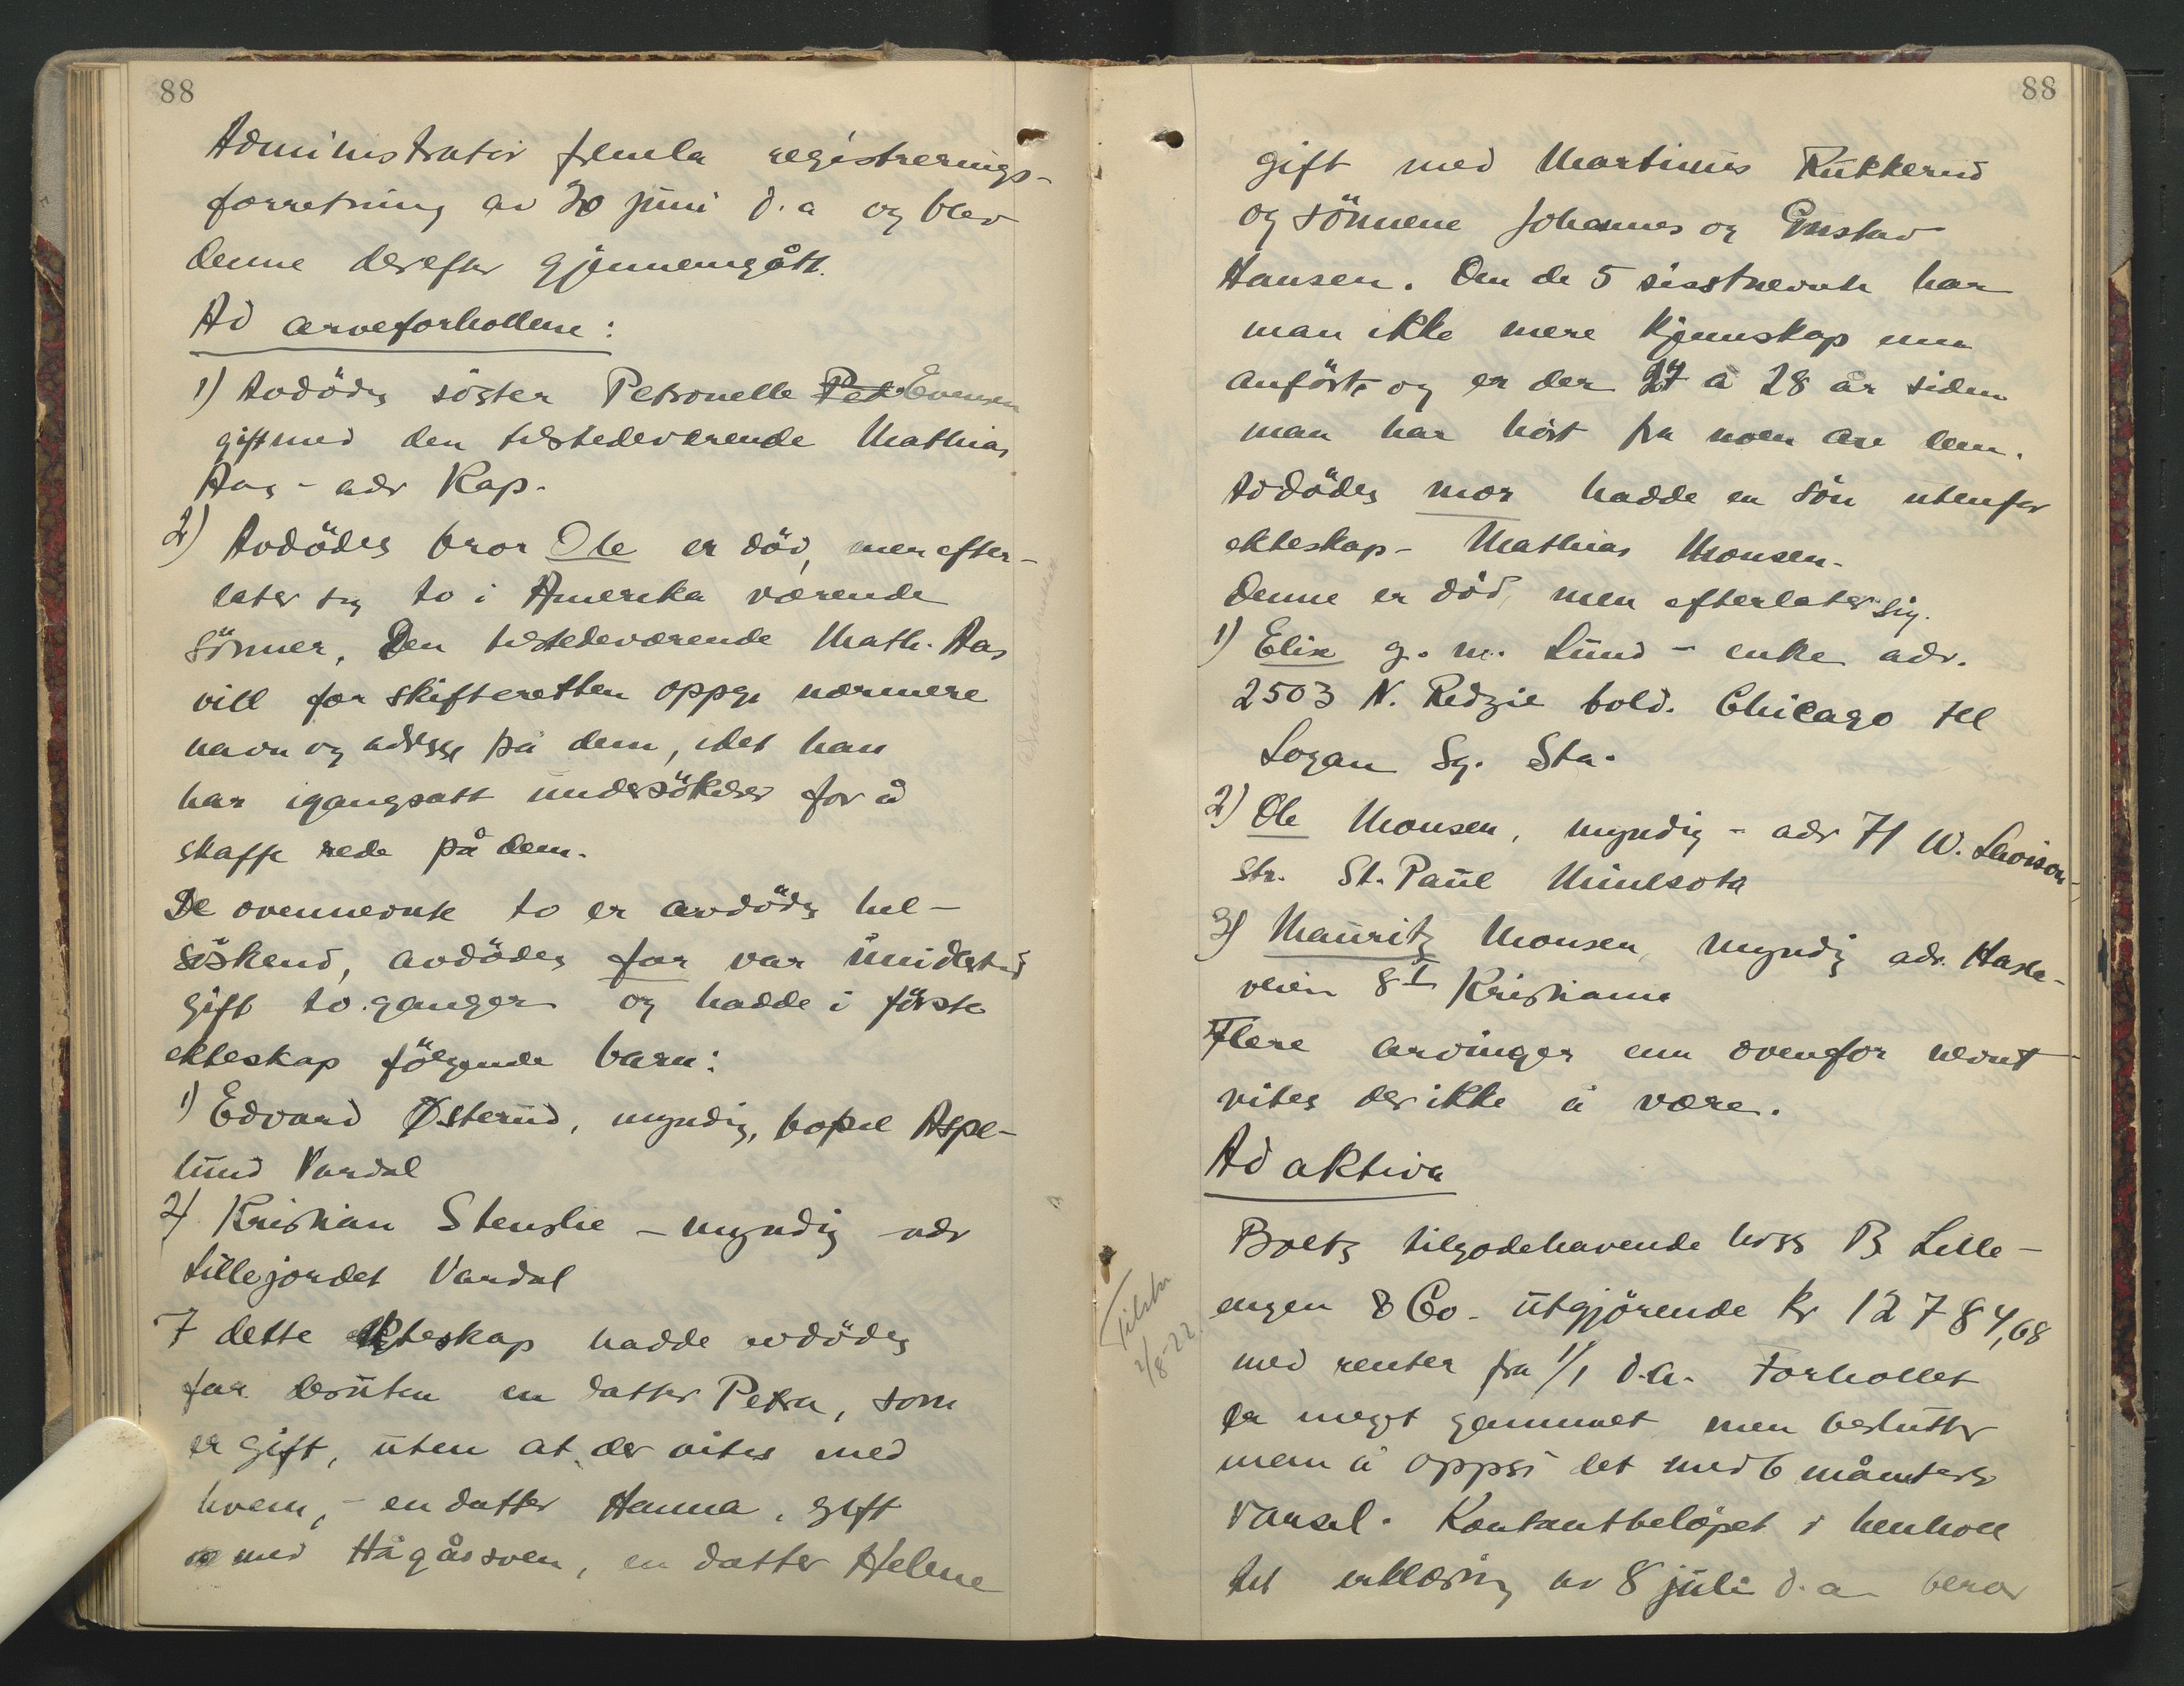 88
Administrator fremla registrerings-
forretning av 30 juni d.a og blev
denne derefter gjennemgått.
Ad arveforholdene:
1) Avdödes söster Petronelle Pet Evensen
gift med den tilstedeværende Mathias
Aas - adr Kap.
2) Avdödes bror Ole er död, men efter-
later sig to i Amerika værende
sönner, Den tilstedeværende Math. Aas
vill for skifteretten oppgi nærmere
navn og adresse på dem, idet han
har igangsatt undersökelser for å
skaffe rede på dem.
De ovennevnte to er avdödes hel-
söskend, avdödes far var imidlertid
gift to ganger og hadde i förste
ekteskap fölgende barn:
1) Edvard Østerud, myndig, bopel Aspe-
lund Vardal
2) Kristian Stenslie - myndig adr
Lillejordet Vardal
I dette ekteskap hadde avdödes
far desuten en datter Petra, som
er gift, uten at der vites med
hvem, - en datter Hanna, gift
med Hågåssven, en datter Helene
88
gift med Martinus Rukkerud
og sönnene Johannes og Gustav
Hansen. Om de 5 sisstnevnte har
man ikke mere kjennskap enn
anfört og er der 27 à 28 år siden
man har hört fra noen av dem.
Avdödes mor hadde en sön utenfor
ekteskap - Mathias Monsen.
Denne er död, men efterlater sig.
1) Elise g. m. Lund - enke adr.
2503 N. Kedzie bold. Chicago Ill
Logan Sq. Sta.
2) Ole Monsen, myndig - adr 71 W.
str. St. Paul Minesota
3) Mauritz Monsen, myndig adr. Hasle-
veien 8 I Kristiania
Flere arvinger enn ovenfor nevnt
vites der ikke å være.
Ad aktiva
Boets tilgodehavende hoss B Lille-
engen & Co. utgjörende kr 12784,68
med renter fra 1/1 d.a. Forholdet
er meget gammelt men beslutter
man å oppsi det med 6 måneders
varsel. Kontantbelöpet i henhold
til erklæring av 8 juli d.a beror
2/8-22